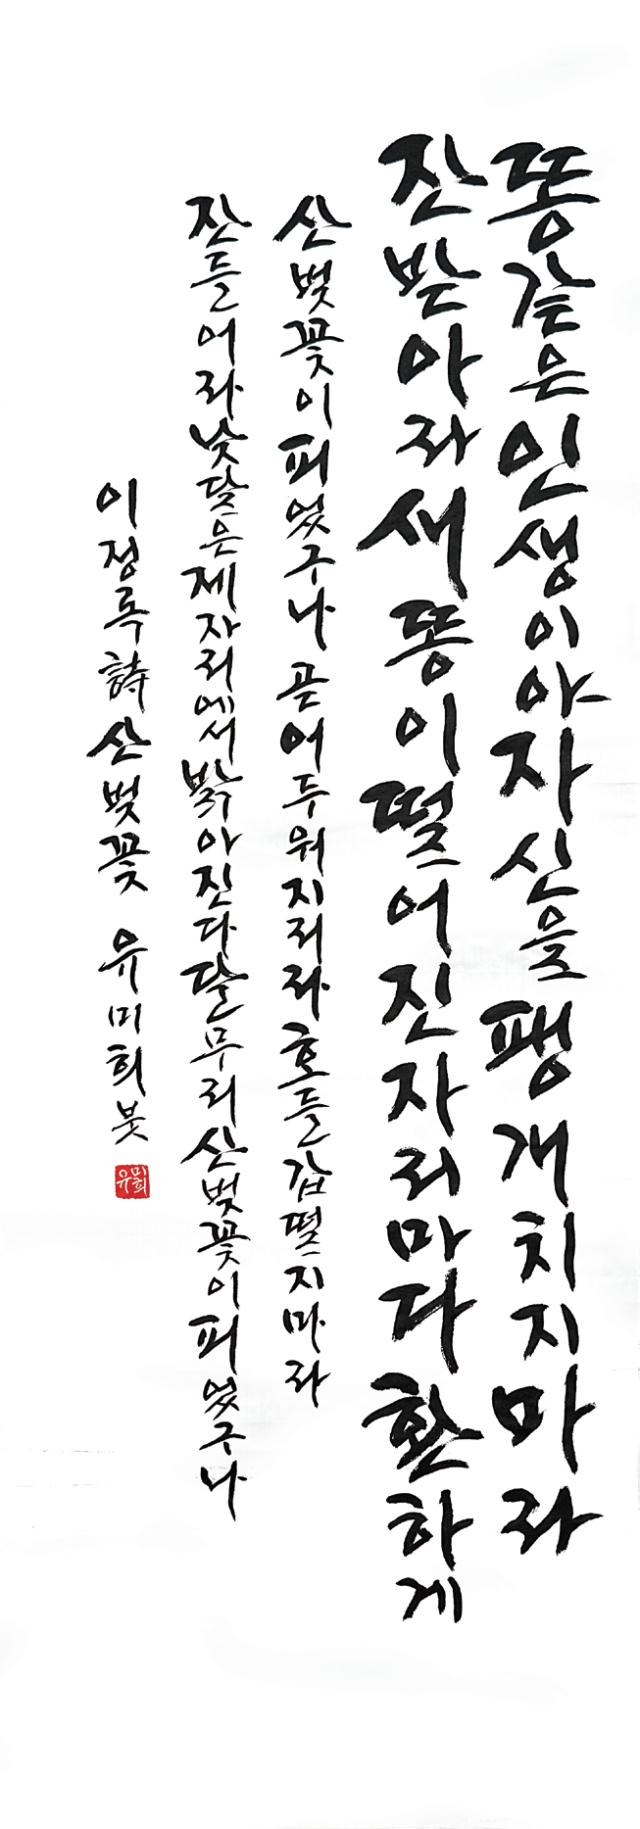 똥 같은 인생이야 자신을 팽개치지 마라
잔 받아라 새똥이 떨어진 자리마다 환하게
산벚꽃이 피었구나 곧 어두워지리라 호들갑 떨지 마라
잔 들어라 낮달은 제자리에서 밝아진다 달무리 산벚꽃이 피었구나
이정록 詩 산벚꽃 유미희 붓
유미희